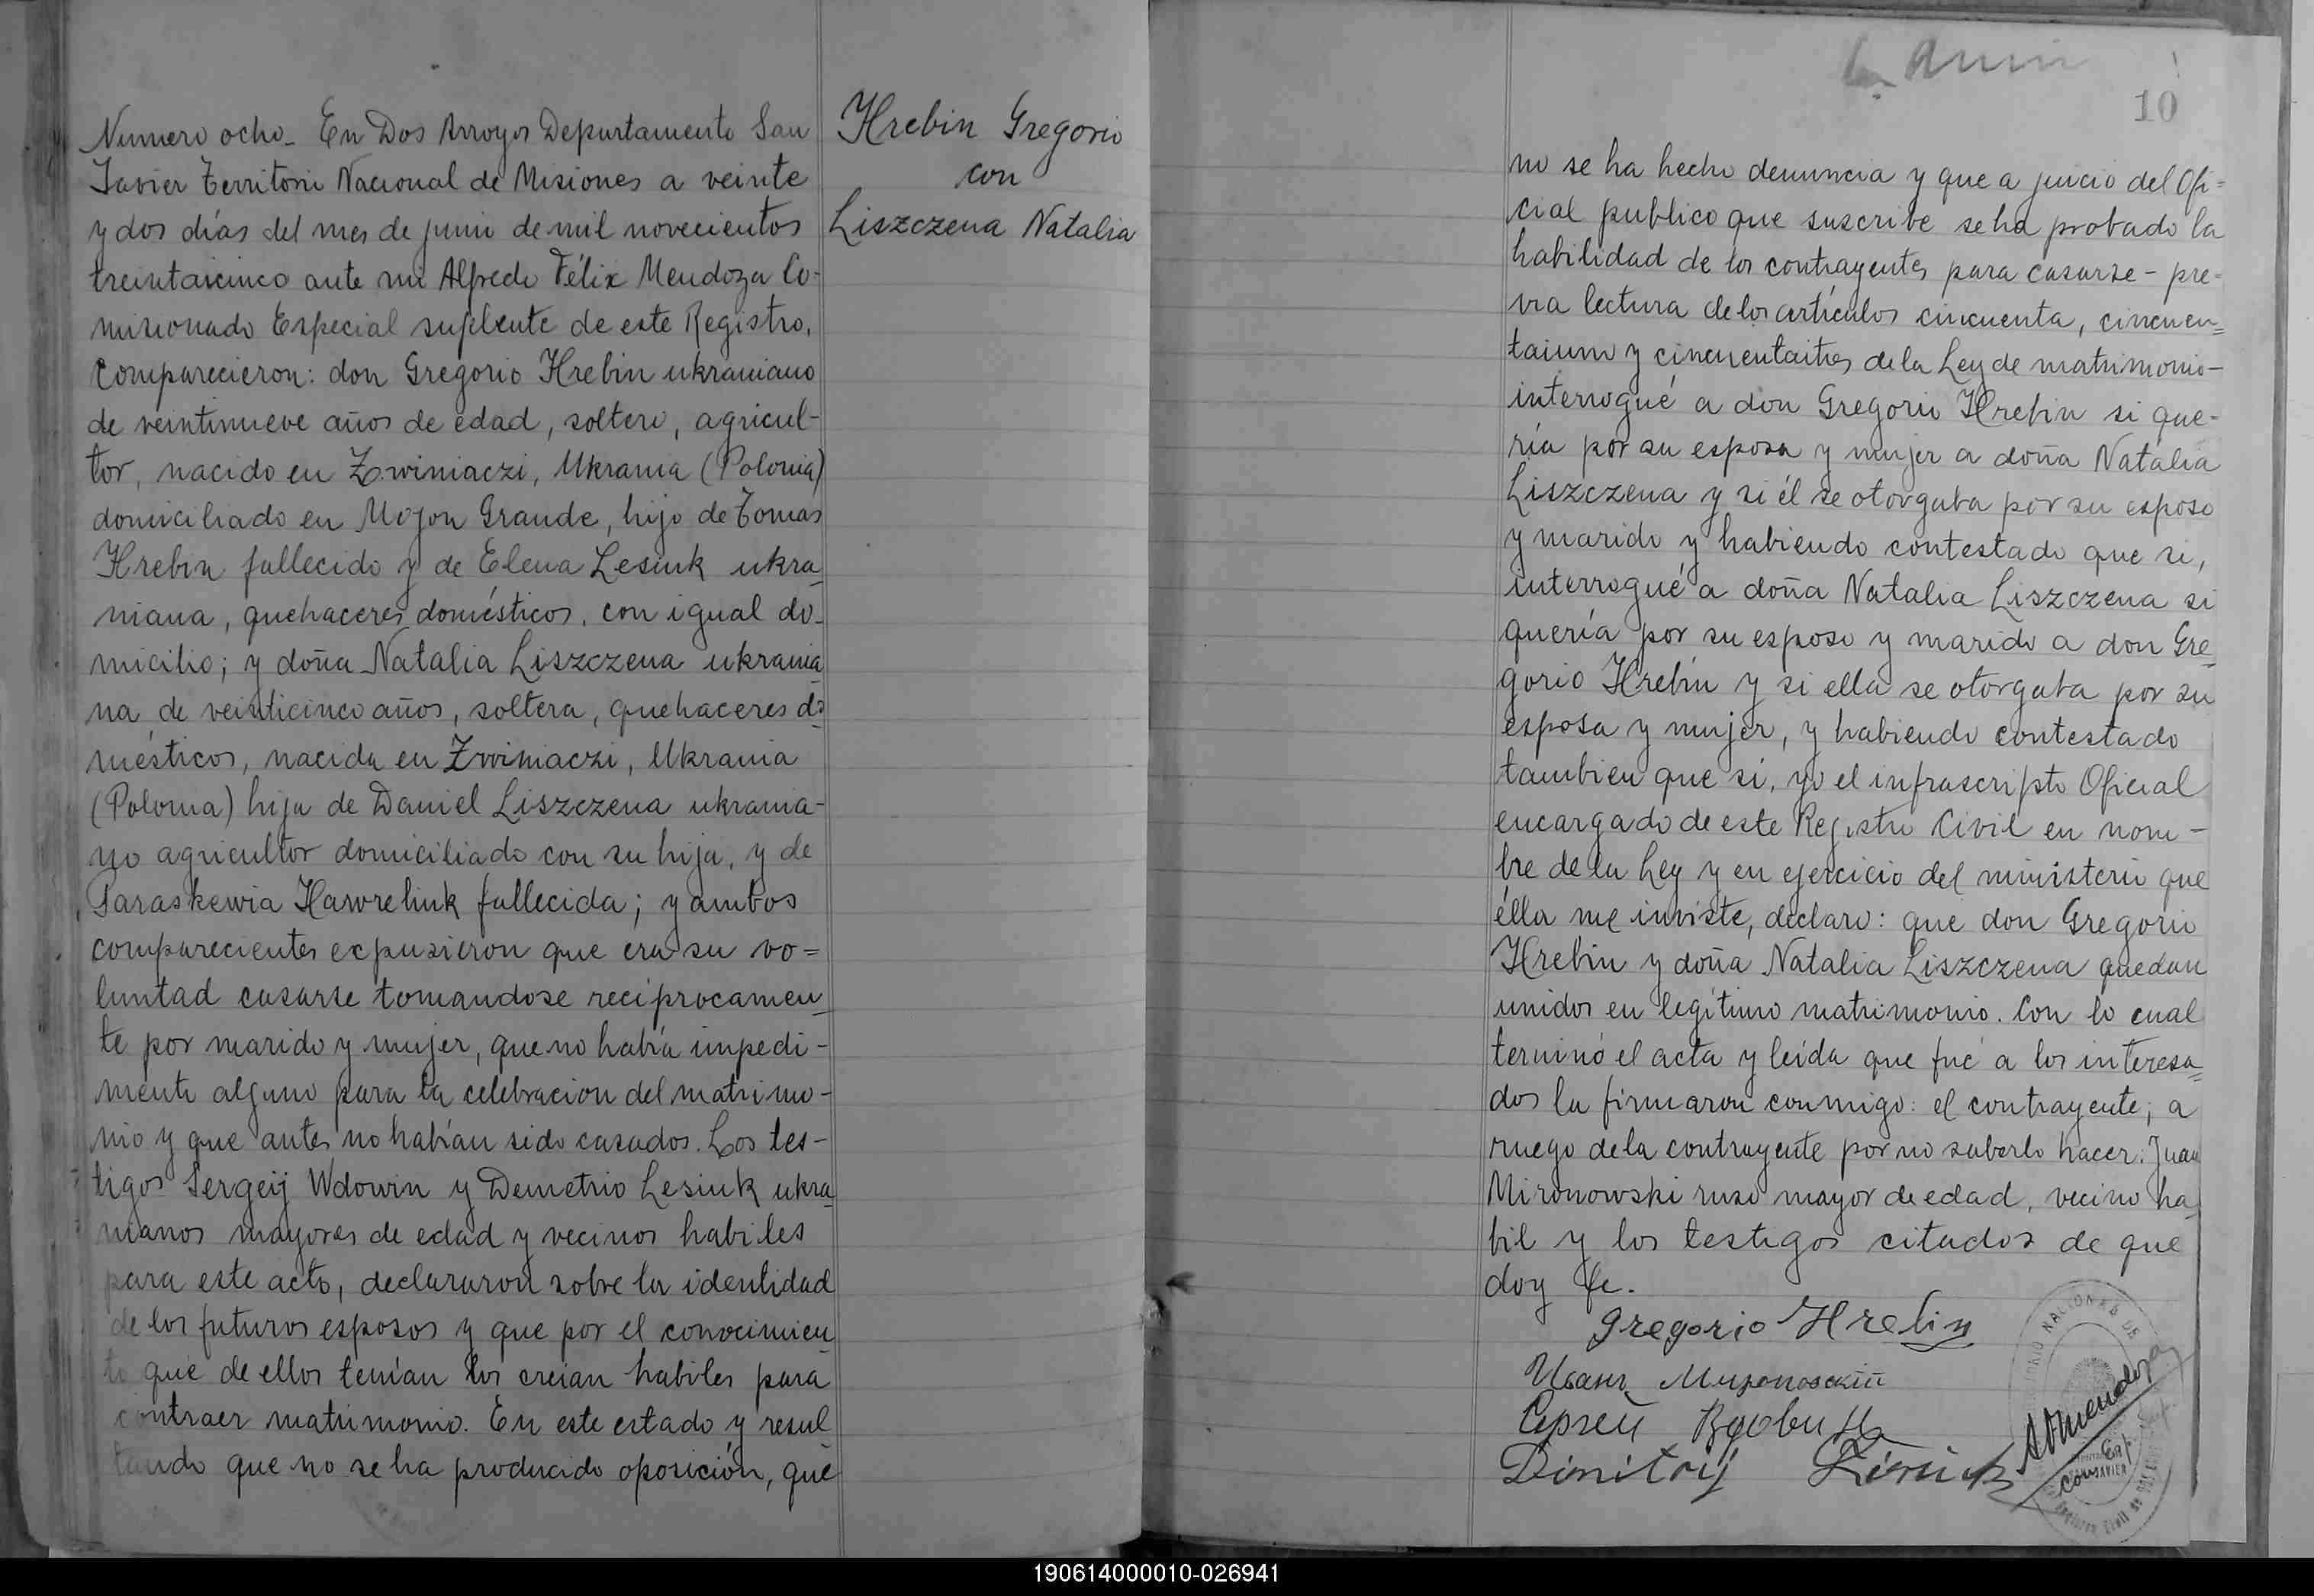 Numero ocho_ En Dos Arroyos Departamento San
Javier Territorio Nacional de Misiones a veinte
y dos días del mes de junio de mil novecientos
treintaicinco ante mi Alfredo Félix Mendoza Co-
misionado Especial suplente de este Registro,
comparecieron: don Gregorio Hrebin ukraniano
de veintinueve años de edad, soltero, agricul-
tor, nacido en Zwiniaczi, Ukrania (Polonia)
domiciliado en Mojon Grande, hijo de Tomas
Hrebin fallecido y de Elena Lesiuk ukra_
niana, quehaceres domésticos, con igual do_
micilio; y doña Natalia Liszczena ukrania_
na de veinticinco años, soltera, quehaceres do_
mésticos, nacida en Zwiniaczi, Ukrania
(Polonia) hija de Daniel Liszczena ukrania-
no agricultor domiciliado con su hija, y de
Paraskewia Hawreliuk fallecida; y ambos
comparecientes expusieron que era su vo=
luntad casarse tomandose reciprocamen_
te por marido y mujer, que no había impedi-
mento alguno para la celebracion del matrimo-
nio y que antes no habían sido casados. Los tes-
tigos Sergeij Wdowin y Demetrio Lesiuk ukra_
nianos mayores de edad y vecinos habiles
para este acto, declararon sobre la identidad
de los futuros esposos y que por el conocimien_
to que de ellos tenían los creían habiles para
contraer matrimonio. En este estado y resul_
tando que no se ha producido oposición, que
Hrebin Gregorio
con
Liszczena Natalia
10
no se ha hecho denuncia y que a juicio del Ofi=
cial publico que suscribe se ha probado la
habilidad de los contrayentes para casarse - pre=
via lectura de los artículos cincuenta, cincuen=
taiuno y cincuentaitres de la Ley de matrimonio-
interrogué a don Gregorio Hrebin si que-
ría por su esposa y mujer a doña Natalia
Liszczena y si él se otorgaba por su esposo
y marido y habiendo contestado que si,
interrogué a doña Natalia Liszczena si
quería por su esposo y marido a don Gre_
gorio Hrebin y si ella se otorgaba por su
esposa y mujer, y habiendo contestado
tambien que sí, yo el infrascripto Oficial
encargado de este Registro Civil en nom-
bre de la Ley y en ejercicio del ministerio que
élla me inviste, declaro: que don Gregorio
Hrebin y doña Natalia Liszczena quedan
unidos en legítimo matrimonio. Con lo cual
terminó el acta y leída que fué a los interesa=
dos la firmaron conmigo: el contrayente; a
ruego de la contrayente por no saberlo hacer: Juan
Mironowski ruso mayor de edad, vecino ha_
bil y los testigos citados de que
doy fe.
Gregorio Hrebin
Иванъ Мироновскій
Сергей Вдовин
Dimitrij Lisiuk
AFMendoza
Com Esp
190614000010-026941